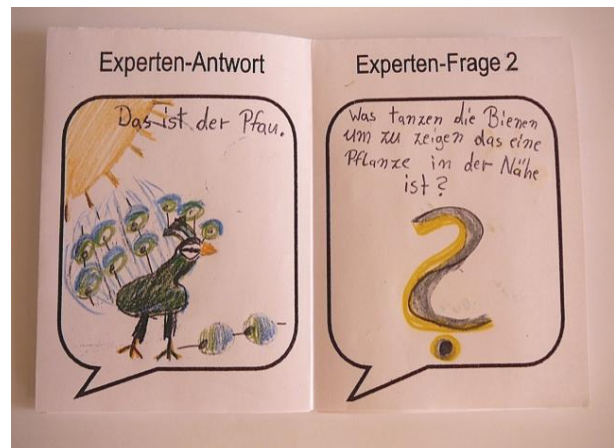 Experten-Antwort
Das ist der Pfau.
Experten-Frage 2
Was tanzen die Bienen
um zu zeigen das eine
Pflanze in der Nähe
ist?